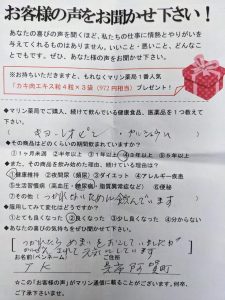 お客様の声をお聞かせ下さい！
あなたの喜びの声を聞くほど、私たちの仕事に情熱とやりがいを
与えてくれるものはありません。いいこと・悪いこと、どんなこ
とでもです。ぜひ、あなた様の声をお聞かせ下さい。
※お持ちいただきますと、もれなくマリン薬局1番人気
「カキ肉エキス粒4粒×3袋（972円相当）プレゼント！
◆マリン薬局でご購入、続けて飲んでいる健康食品、医薬品を1つ教えて
下さい。
キヨーレオピン
◆その商品はどのくらいの期間飲まれていますか？
①1ヶ月未満 ②半年以上 ③1年以上 ④3年以上 ⑤5年以上
◆また、その商品を飲み始めた理由、続けている理由は？
①健康維持 ②夜間尿（頻尿） ③ダイエット ④アレルギー疾患
⑤生活習慣病（高血圧・糖尿病・脂質異常症など） ⑥便秘
⑦その他（つかれないために飲んでいます）
◆服用してみて変化はどうですか？
①とても良くなった ②良くなった ③少し良くなった ④分からない
◆あなたの喜びの気持ちをぜひ聞かせて下さい。
つかれたら めまいをおこしていましたが
元気にしています
お名前（ペンネーム） ご住所
T K
☆この「お客様の声」がマリン通信に載ることがございます。何卒、
ご了承下さいませ。